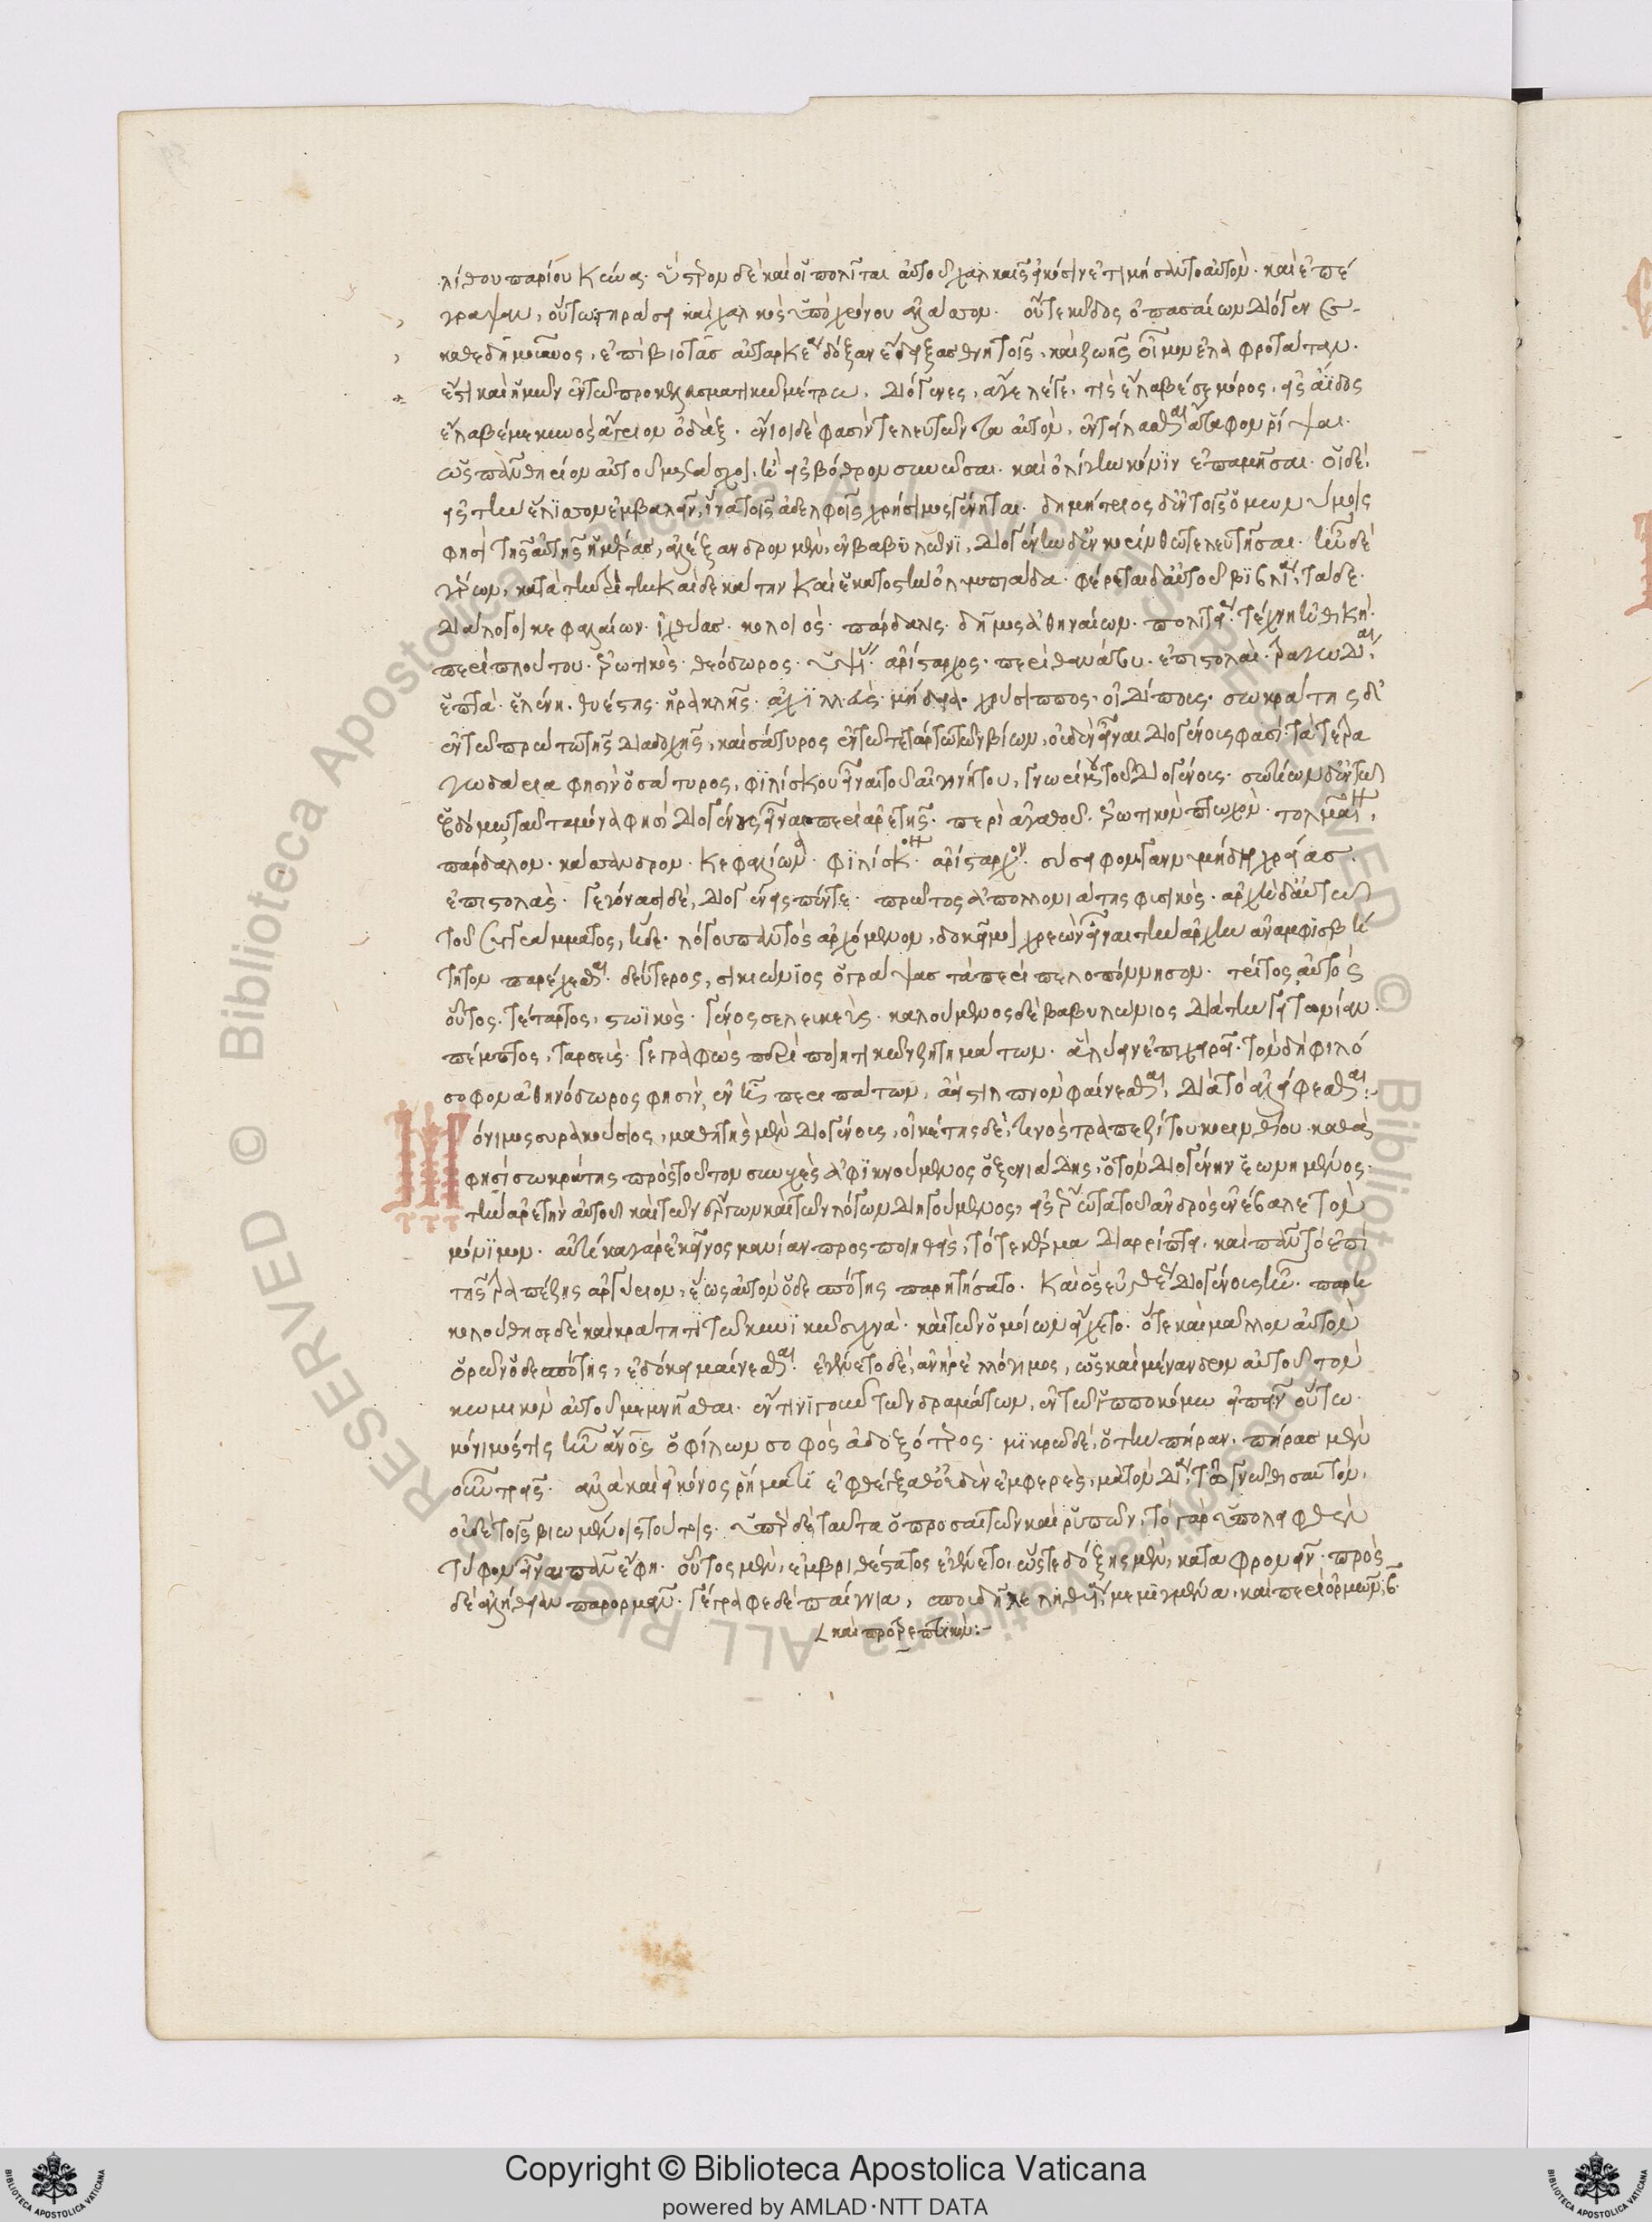 λίθου παρίου κύνα. ὕστερον δὲ καὶ οἱ πολῖται αὐτοῦ χαλκαῖς εἰκόσιν ἐτίμησαν τὸ αὐτόν. καὶ ἐπέ
γραψαν, οὕτω· γηράσκει καὶ χαλκὸς ὑπὸ χρόνου ἀλλ' οὔτι σὸν οὔτε κῦδος ὁ πᾶς αἰὼν Διόγενες
καθεῖλε μοῦνος, ἐπεὶ βιοτᾶς αὐτάρκεα δόξαν ἔδειξας θνητοῖς, καὶ ζωῆς οἶμον ἐλαφροτάταν.
ἔστι καὶ ἡμῶν ἐν τῷ προκελευσματικῷ μέτρῳ. Διόγενες, ἄγε λέγε, τίς ἔλαβέ σε μόρος, εἰς ἄϊδος
ἔλαβέ με κυνὸς ἄγριον ὀδάξ. ἔνιοι δέ φασιν τελευτῶντα αὐτὸν, ἐντείλασθαι ἄταφον ῥίψαι.
ὡς πᾶν θηρίον αὐτοῦ μετάσχοι, ἢ εἰς βόθρον συνῶσαι. καὶ ὀλίγην κόνιν ἐπαμῆσαι. οἱ δὲ,
εἰς τὴν ἐλισσὸν ἐμβαλεῖν, ἵνα τοῖς ἀδελφοῖς χρήσιμος γένηται. δημήτριος δ' ἐν τοῖς ὁμωνύμοις
φησὶ τῆς αὐτῆς ἡμέρας, ἀλέξανδρον μὲν, ἐν βαβυλῶνι, Διογένην δ' ἐν κορίνθῳ τελευτῆσαι. ἦν δὲ
γέρων, κατὰ τὴν τρίτην καὶ δεκάτην καὶ ἑκατοστὴν ὀλυμπιάδα. φέρεται δ' αὐτοῦ βιβλία, τάδε.
Διάλογοι κεφαλίων. ἰχθύας. κολοιός. πάρδαλις. δῆμος ἀθηναίων. πολιτεία. τέχνη ἠθική.
περὶ πλούτου. ἐρωτικός. θεόδωρος. ὑψίας. ἀρίσταρχος. περὶ θανάτου. ἐπιστολαί. τραγῳδίαι,
ἑπτά. ἑλένη. θυέστης. ἡρακλῆς. ἀχιλλεύς. μήδεια. χρύσιππος. οἰδίπους. σωκράτης δ'
ἐν τῷ πρώτῳ τῆς διαδοχῆς, καὶ σάτυρος ἐν τῷ τετάρτῳ τῶν βίων, οὐδὲν εἶναι Διογένους φασί. τά τε τρα
γῳδάρια φησὶν ὁ σάτυρος, φιλίσκου εἶναι τοῦ αἰγινήτου, γνωρίμου τοῦ Διογένους. σωτίων δ' ἐν τῷ
ἑβδόμῳ ταῦτα μόνα φησὶ Διογένους εἶναι περὶ ἀρετῆς. περὶ ἀγαθοῦ. ἐρωτικὸν πτωχόν. τολμαῖον,
πάρδαλον. κάσανδρον. κεφαλίωνα. φιλίσκον. ἀρίσταρχον. σίσυφον. γανυμήδην χρείας.
ἐπιστολάς. γεγόνασι δὲ, Διογένεις πέντε. πρῶτος ἀπολλωνιάτης φυσικός. ἀρχὴ δ' αὐτῷ
τοῦ συγγράμματος, ἥδε. λόγου παντὸς ἀρχόμενον, δοκεῖ μοι χρεὼν εἶναι τὴν ἀρχὴν ἀναμφισβή
τητον παρέχεσθαι. δεύτερος, σικυώνιος ὁ γράψας τὰ περὶ πελοπόννησον. τρίτος, αὐτὸς
οὗτος. τέταρτος, στωϊκός. γένος σελευκεύς. καλούμενος δὲ βαβυλώνιος διὰ τὴν γειτονίαν.
πέμπτος, ταρσεύς. γεγραφὼς περὶ ποιητικῶν ζητημάτων. ἃ λύειν ἐπιχειρεῖ. τὸν δὴ φιλό
σοφον ἀθηνόδωρος φησὶν, ἐν η περιπάτων, ἀεὶ στιλπνὸν φαίνεσθαι, διὰ τὸ ἀλείφεσθαι:-
Μόνιμος συρακούσιος, μαθητὴς μὲν Διογένους, οἰκέτης δέ, τινὸς τραπεζίτου κορινθίου. καθά
φησι σωκράτης πρὸς τοῦτον συνεχὲς ἀφικνούμενος ὁ ξενιάδης, ὁ τὸν Διογένην ἐωνημένος.
τὴν ἀρετὴν αὐτοῦ καὶ τῶν ἔργων καὶ τῶν λόγων διηγούμενος, εἰς ἔρωτα τοῦ ἀνδρὸς ἐνέβαλε τὸν
μόνιμον. αὐτίκα γὰρ ἐκεῖνος μανίαν προσποιηθεὶς, τό τε κέρμα διαρρίπτει. καὶ πᾶν τὸ ἐπὶ
τῆς τραπέζης ἀργύριον, ἕως αὐτὸν ὁ δεσπότης παρητήσατο. καὶ ὃς εὐθέως Διογένους ἦν. παρη
κολούθησε δὲ καὶ κράτητι τῷ κυνικῷ συχνά. καὶ τῶν ὁμοίων εἴχετο. ὅτε καὶ μᾶλλον αὐτὸν
ὁρῶν ὁ δεσπότης, ἐδόκει μαίνεσθαι. ἐγένετο δὲ, ἀνὴρ ἐλλόγιμος, ὡς καὶ μένανδρον αὐτοῦ τὸν
κωμικὸν αὐτοῦ μεμνῆσθαι. ἔν τινι γοῦν τῶν δραμάτων, ἐν τῷ ἱπποκόμῳ εἶπεν οὕτω.
μόνιμός τις ἦν ἄνθρωπος ὦ φίλων σοφὸς ἀδοξότερος. μικρῷ δὲ, ὁ τὴν πήραν. πήρας μὲν
οὖν τρεῖς. ἀλλὰ καὶ ἐκεῖνος ῥῆμα τι ἐφθέγξατο οὐδὲν ἐμφερὲς, μὰ τὸν Δία, τῷ γνῶθι σαυτόν,
οὐδὲ τοῖς βοωμένοις τούτοις. ὑπὲρ δὲ ταῦτα ὁ προσαιτῶν καὶ ῥυπῶν, τὸ γὰρ ὑποληφθὲν
τύφον εἶναι πᾶν ἔφη. οὗτος μὲν, ἐμβριθέστατος ἐγένετο. ὥστε δόξης μὲν, καταφρονεῖν. πρὸς
δὲ ἀλήθειαν παρορμᾶν. γέγραφε δὲ παίγνια, σπουδῇ λεληθυίᾳ μεμιγμένα, καὶ περὶ ὁρμῶν, β
καὶ προτρεπτικόν:-
Copyright © Biblioteca Apostolica Vaticana
powered by AMLAD·NTT DATA